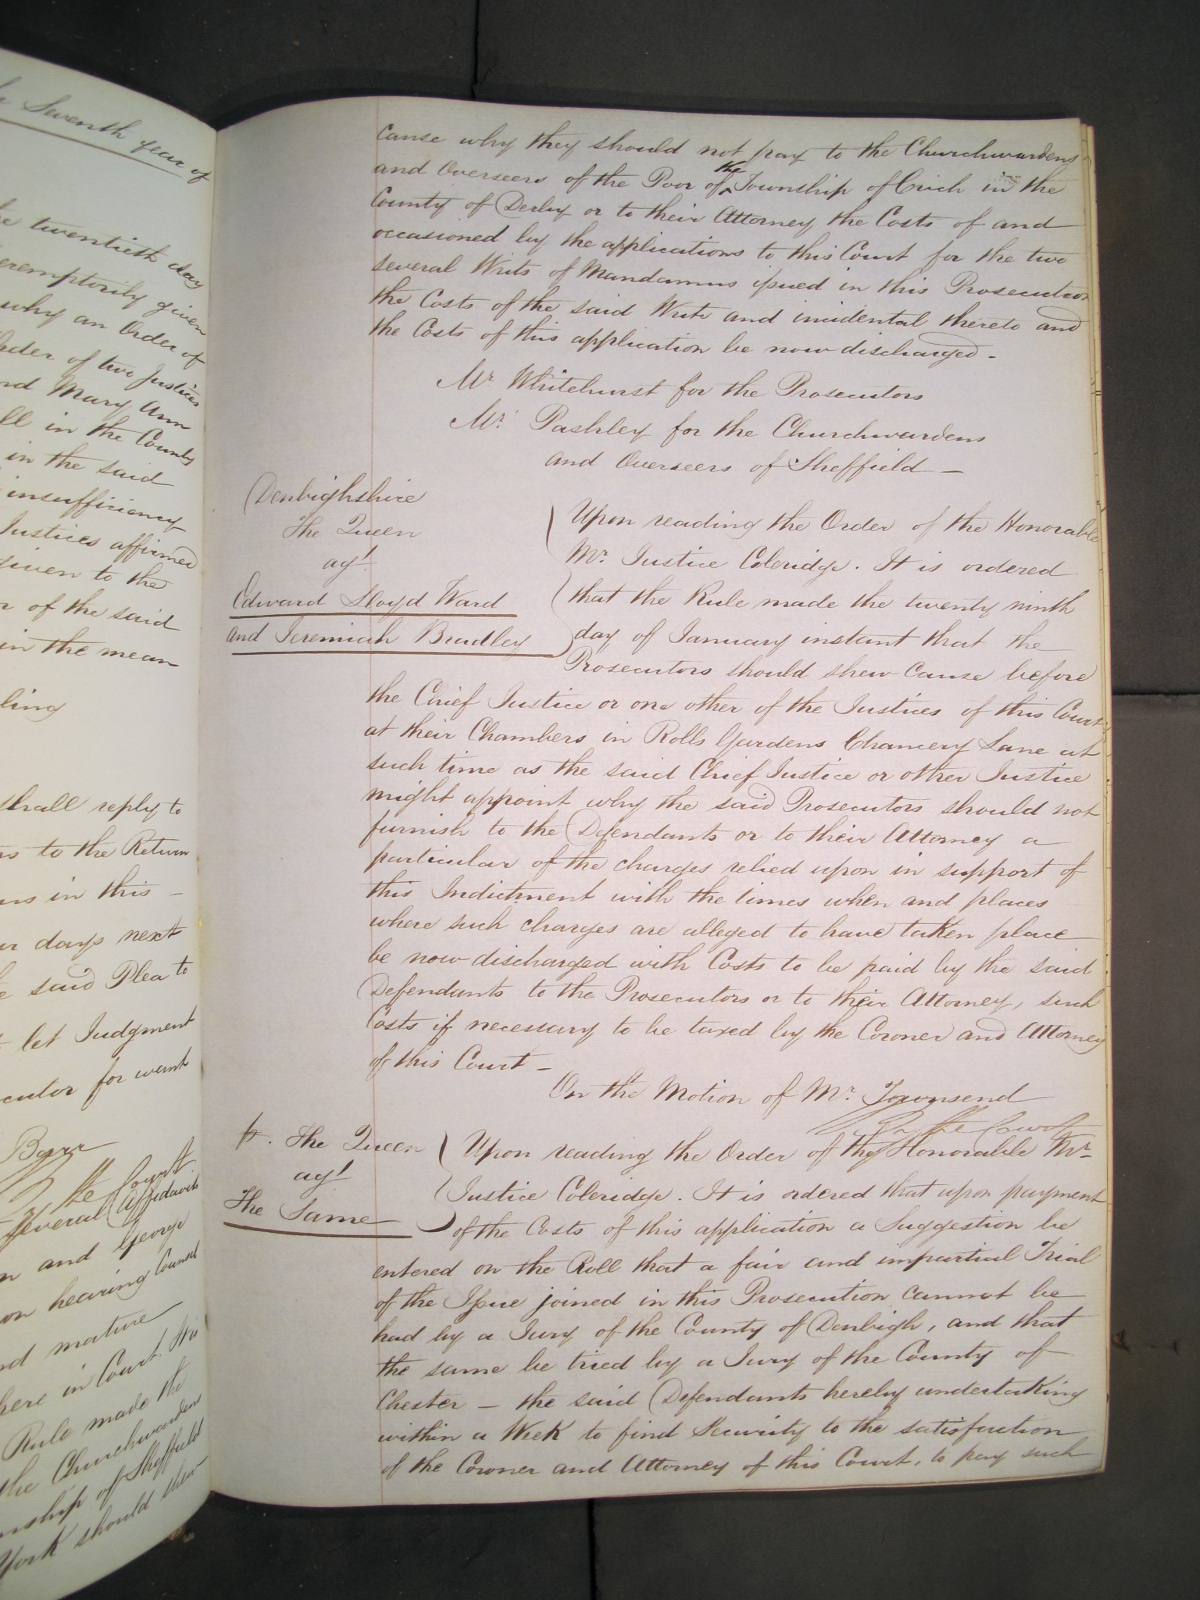 Seventh year of
twentieth day
peremptorily given
why an Order of
Order of two Justices
and Mary Ann
in the County
in the said
insufficiency
Justices affirmed
given to the
of the said
in the mean
shall reply to
to the Return
in this —
days next
said Plea to
let Judgment
for want
By the Court
several Affidavits
and George
on hearing Counsel
and mature
here in Court. It is
Rule made the
the Churchwardens
Township of Sheffield
York should shew
cause why they should not pay to the Churchwardens
and Overseers of the Poor of the Township of Crich in the
County of Derby or to their Attorney the Costs of and
occasioned by the applications to this Court for the two
several Writs of Mandamus issued in this Prosecution
the Costs of the said Writs and incidental thereto and
the Costs of this application be now discharged –
Mr. Whitehurst for the Prosecutors
Mr. Pashley for the Churchwardens
and Overseers of Sheffield —
Denbighshire
The Queen
agt.
Edward Lloyd Ward
and Jeremiah Bradley
Upon reading the Order of the Honorable
Mr. Justice Coleridge. It is ordered
that the Rule made the twenty ninth
day of January instant that the
Prosecutors should shew cause before
the Chief Justice or one other of the Justices of this Court
at their Chambers in Rolls Gardens Chancery Lane at
such time as the said Chief Justice or other Justice
might appoint why the said Prosecutors should not
furnish to the Defendants or to their Attorney a
particular of the charges relied upon in support of
this Indictment with the times when and places
where such charges are alleged to have taken place
be now discharged with Costs to be paid by the said
Defendants to the Prosecutors or to their Attorney, such
Costs if necessary to be taxed by the Coroner and Attorney
of this Court –
On the Motion of Mr. Townsend
By the Court
The Queen
agt
The Same
Upon reading the Order of the Honorable Mr.
Justice Coleridge. It is ordered that upon payment
of the Costs of this application a Suggestion be
entered on the Roll that a fair and impartial Trial
of the Issue joined in this Prosecution cannot be
had by a Jury of the County of Denbigh, and that
the same be tried by a Jury of the County of
Chester – the said Defendants hereby undertaking
within a Week to find Security to the satisfaction
of the Coroner and Attorney of this Court, to pay such